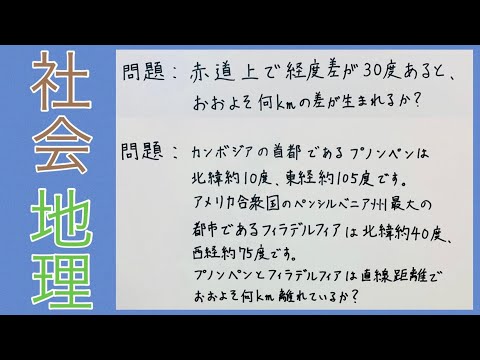 社会 地理
問題：赤道上で経度差が30度あると、
おおよそ何kmの差が生まれるか？
問題：カンボジアの首都であるプノンペンは
北緯約10度、東経約105度です。
アメリカ合衆国のペンシルベニア州最大の
都市であるフィラデルフィアは北緯約40度、
西経約75度です。
プノンペンとフィラデルフィアは直線距離で
おおよそ何km離れているか？